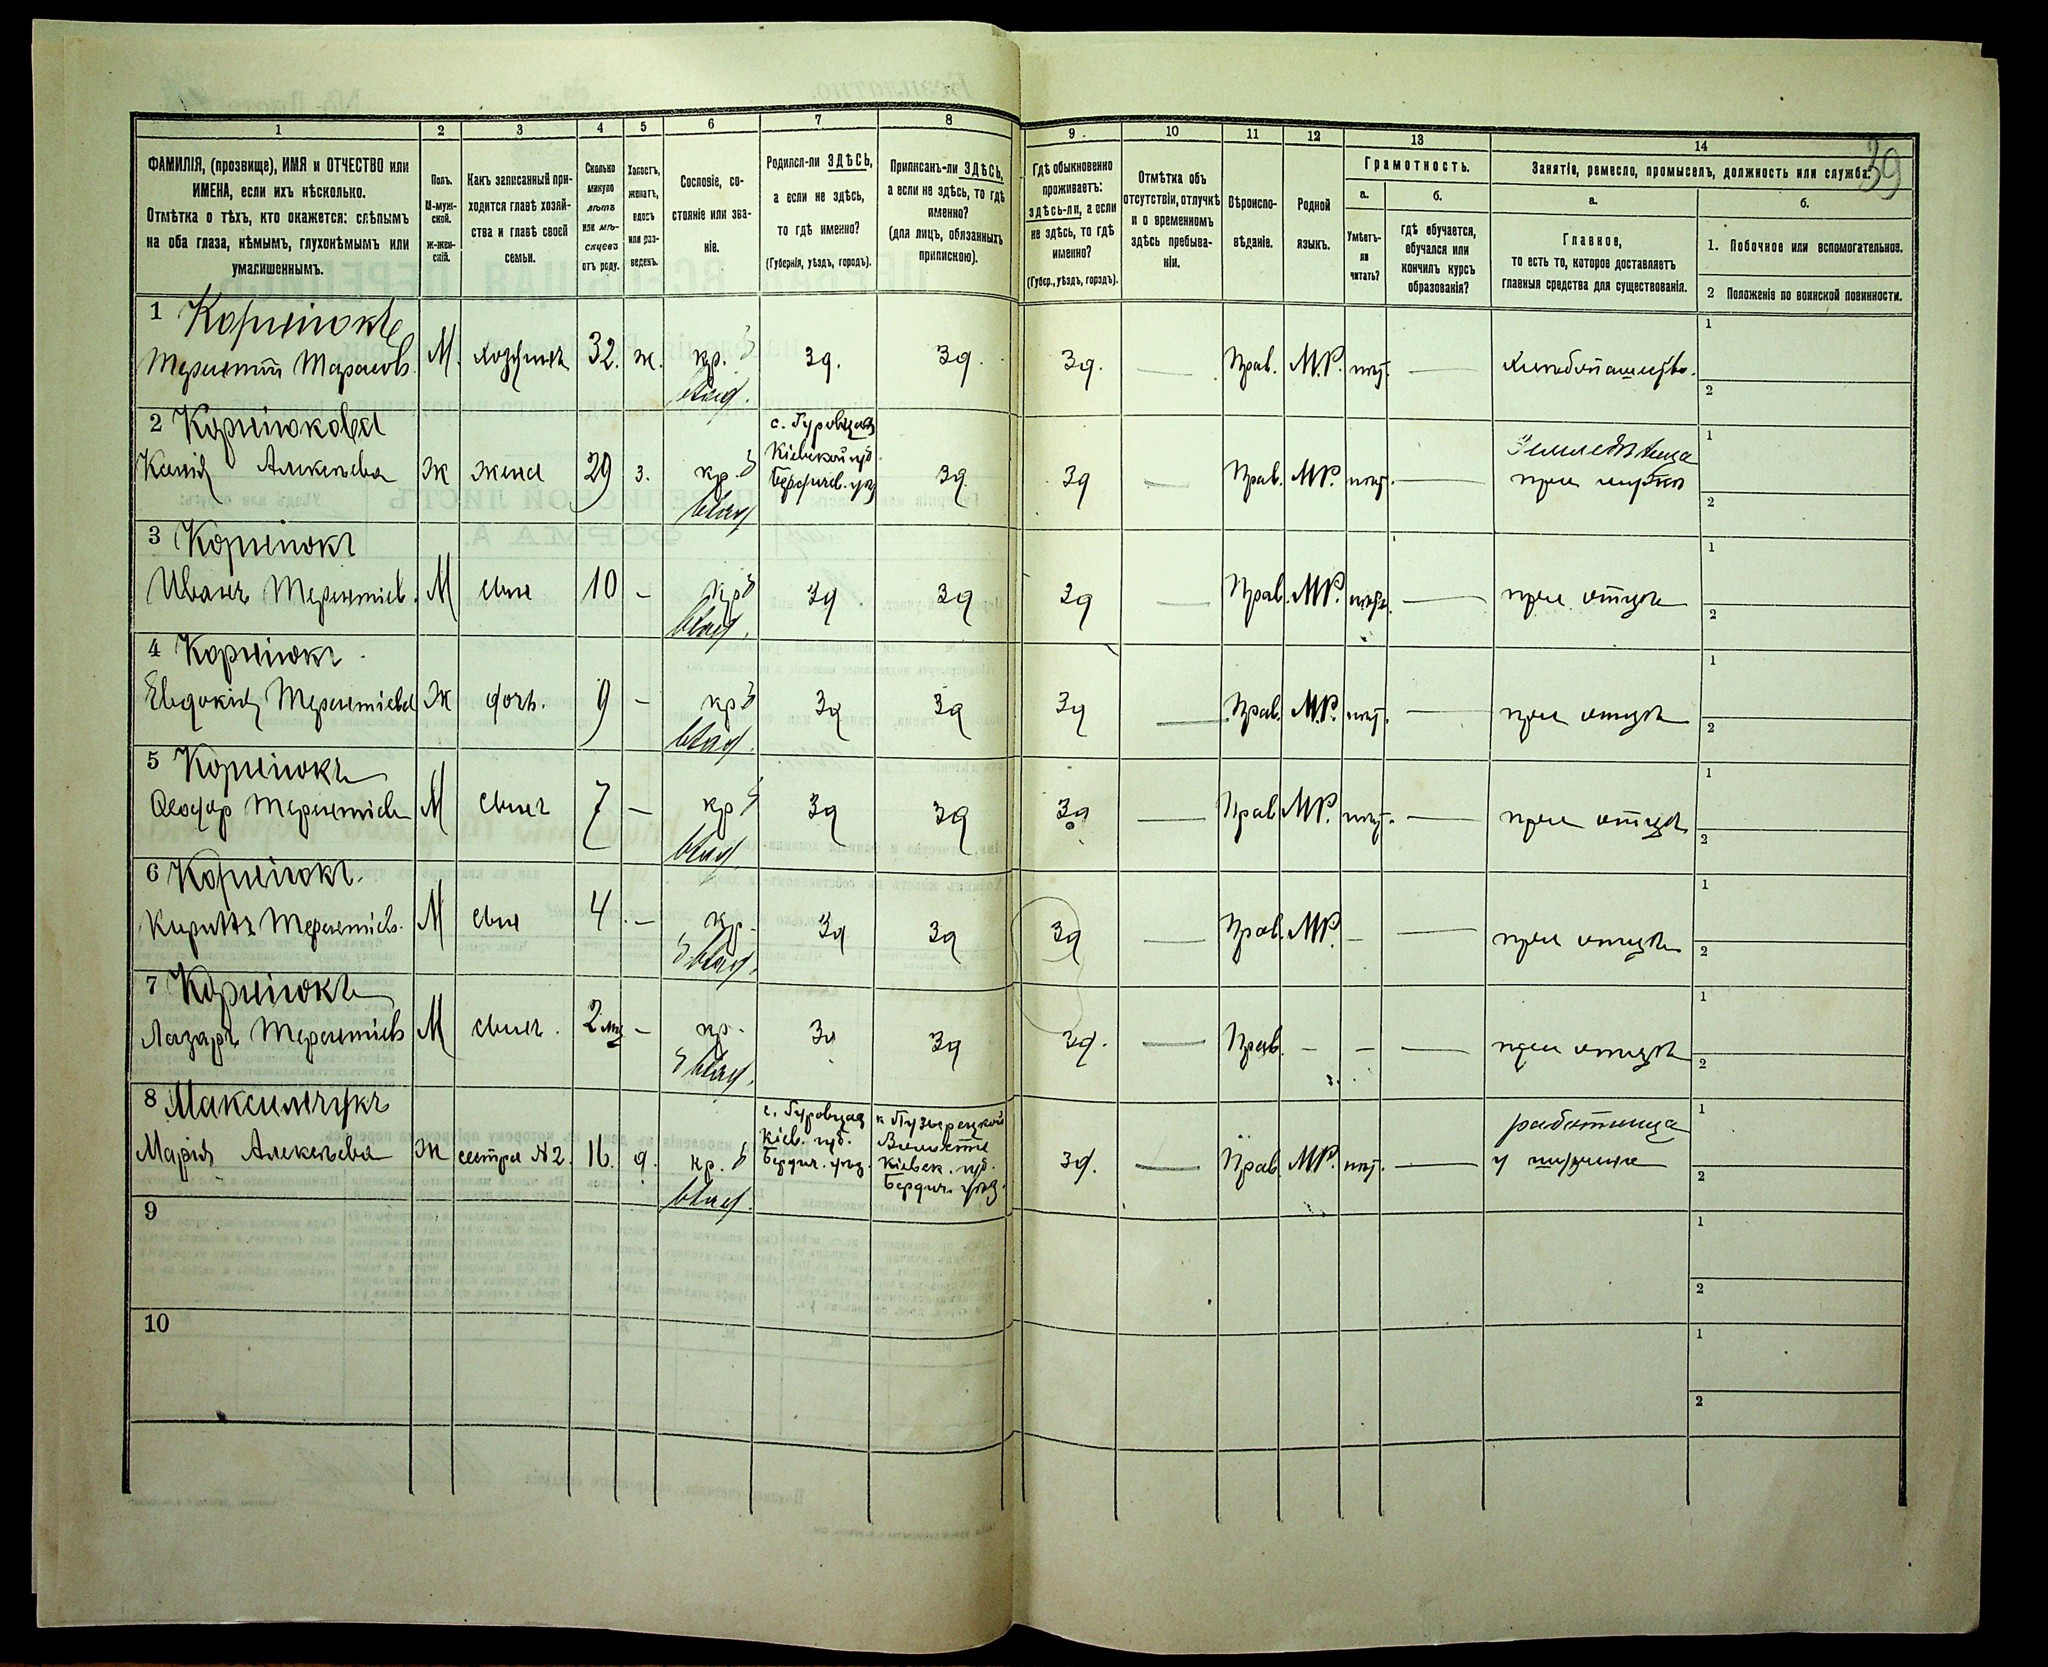 39
1
2
3
4
5
6
7
8
9
10
11
12
13
14
ФАМИЛІЯ, (прозвище), ИМЯ и ОТЧЕСТВО или
ИМЕНА, если ихъ нѣсколько.
Отмѣтка о тѣхъ, кто окажется: слѣпымъ
на оба глаза, нѣмымъ, глухонѣмымъ или
умалишеннымъ.
Полъ.
М-муж-
ской.
Ж-жен-
скій.
Какъ записанный при-
ходится главѣ хозяй-
ства и главѣ своей
семьи.
Сколько
минуло
лѣтъ
или мѣ-
сяцевъ
отъ роду.
Холостъ,
женатъ,
вдовъ
или раз-
веденъ.
Сословіе, со-
стояніе или зва-
ніе.
Родился-ли ЗДѢСЬ,
а если не здѣсь,
то гдѣ именно?
(Губернія, уѣздъ, городъ).
Приписанъ-ли ЗДѢСЬ,
а если не здѣсь, то гдѣ
именно?
(для лицъ, обязанныхъ
припискою).
Гдѣ обыкновенно
проживаетъ:
здѣсь-ли, а если
не здѣсь, то гдѣ
именно?
(Губер., уѣздъ, городъ).
Отмѣтка объ
отсутствіи, отлучкѣ
и о временномъ
здѣсь пребыва-
ніи.
Вѣроиспо-
вѣданіе.
Родной
языкъ.
Грамотность.
а.
Умѣетъ-
ли
читать?
б.
гдѣ обучается,
обучался или
кончилъ курсъ
образованія?
Занятіе, ремесло, промыселъ, должность или служба.
а.
Главное,
то есть то, которое доставляетъ
главныя средства для существованія.
б.
1. Побочное или вспомогательное.
2 Положеніе по воинской повинности.
1 Корнiюкъ
Терентій Тарасов. М. хозяинъ 32. ж. кр. зд. зд. зд. — Прав. М.Р. нѣт. — хлебопашество. 1
влад. 2
2 Корнiюкова с. Гуровцах
Ксенія Алексѣева Ж жена 29 з. кр. Кіевской губ. Бердичев. уѣз. зд зд — Прав. М.Р. нѣт. — Земледѣлица 1
влад при мужѣ 2
3 Корнiюкъ
Иванъ Терентіев. М сын 10 – кр зд зд зд — Прав. М.Р. — при отцѣ 1
влад. 2
4 Корнiюкъ
Евдокія Терентіева Ж доч. 9 – кр зд зд зд — Прав. М.Р. нѣт. — при отцѣ 1
влад. 2
5 Корнiюкъ
Феодор Терентіев М сынъ 7 – кр зд зд зд — Прав М.Р. нѣт. — при отцѣ 1
влад 2
6 Корнiюкъ.
Кирилъ Терентіев. М сын 4. – кр. зд зд зд — Прав. М.Р. – — при отцѣ 1
влад. 2
7 Корнiюкъ
Лазарь Терентіев М сынъ. 2 мѣс – кр. зд зд зд. — Прав. – – — при отцѣ 1
влад. 2
8 Максимчукъ с. Гуровцах к Пузырецкой
Марія Алексѣева Ж сестра №2. 16. д. кр. Кіев. губ. Волости зд. — Прав. М.Р. нѣт. — работница 1
влад. Бердич. уѣз. Кіевск. губ. 2
Бердич. уѣзд.
9 1
2
10 1
2